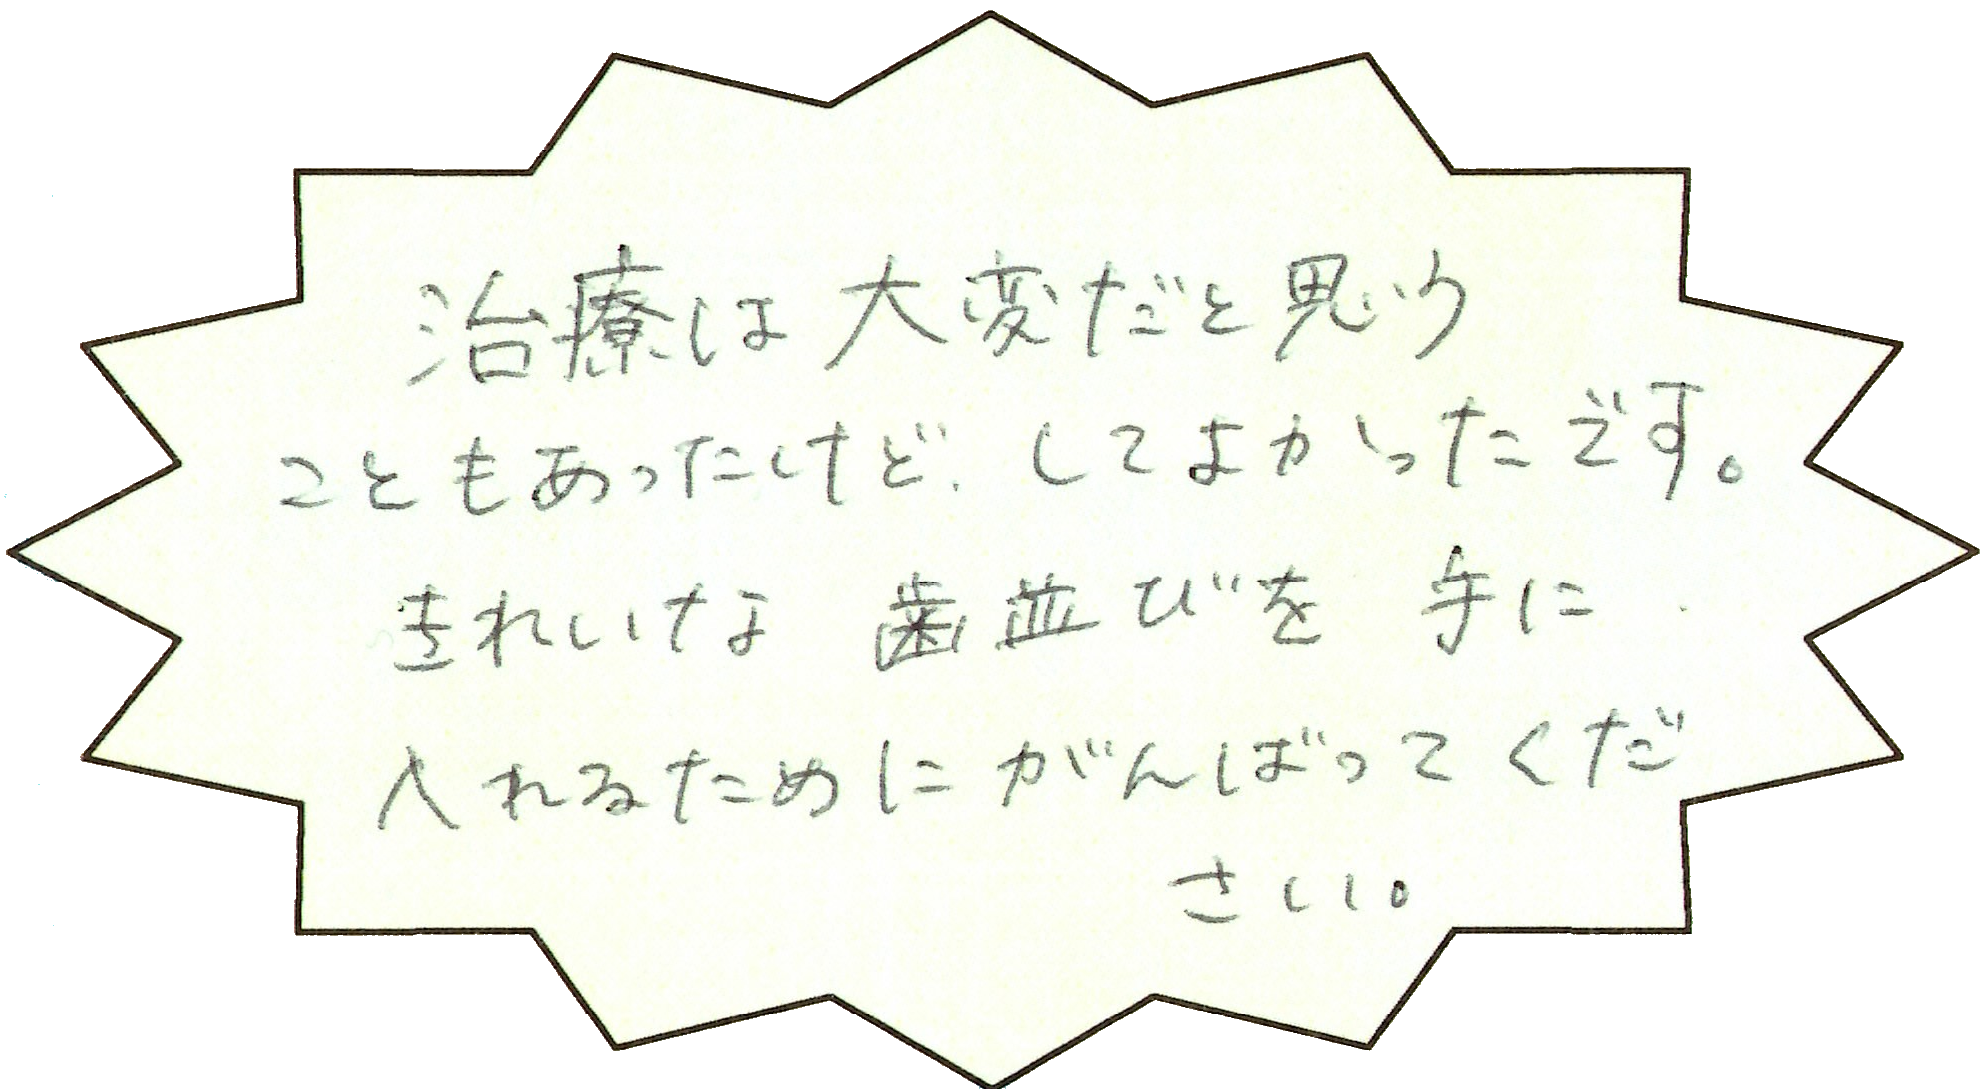 治療は大変だと思う
こともあったけど、してよかったです。
きれいな歯並びを手に
入れるためにがんばってくだ
さい。